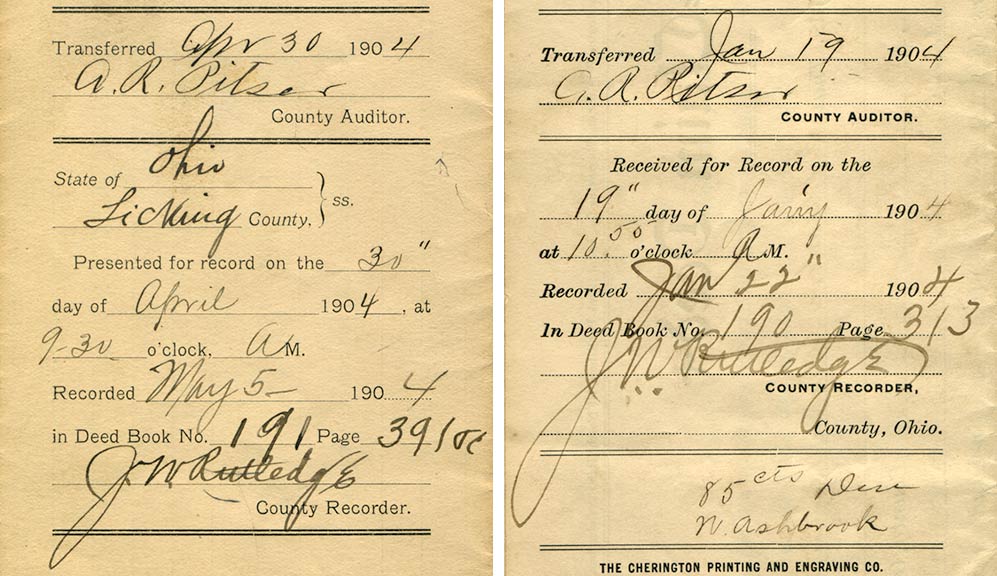 Transferred Apr 30 1904
A. R. Pitser
County Auditor.
State of Ohio
Licking County, } ss.
Presented for record on the 30"
day of April 1904, at
9-30 o'clock, A M.
Recorded May 5- 1904
in Deed Book No. 191 Page 391
J. W. Rutledge
County Recorder.
Transferred Jan 19 1904
A. R. Pitser
COUNTY AUDITOR.
Received for Record on the
19" day of 1904
at 10.55 o'clock A M.
Recorded Jan 22" 1904
In Deed Book No. 190 Page 313
J W Rutledge
COUNTY RECORDER,
County, Ohio.
85 cts Due
N. Ashbrook
THE CHERINGTON PRINTING AND ENGRAVING CO.